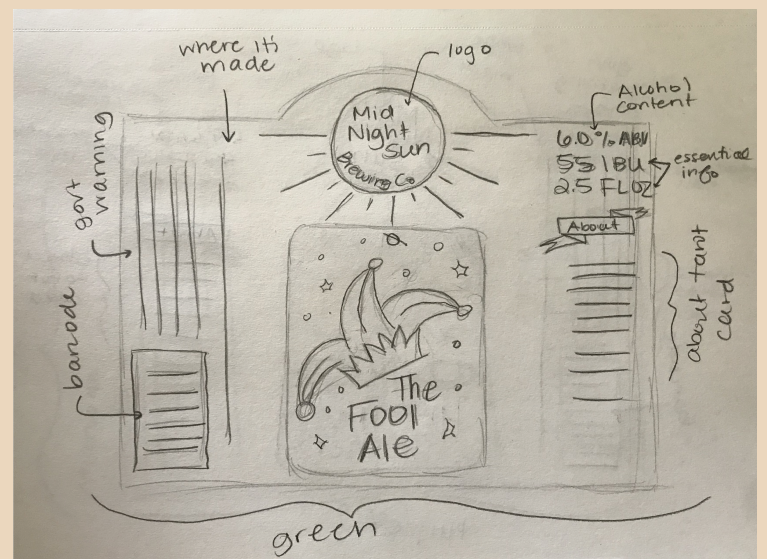 where it's
made
logo
Mid
Night
Sun
Brewing Co
Alcohol
content
6.0% ABV
55 IBU
2.5 FLOZ
essential
info
govt
warning
About
about tarot
card
barcode
The
Fool
Ale
green